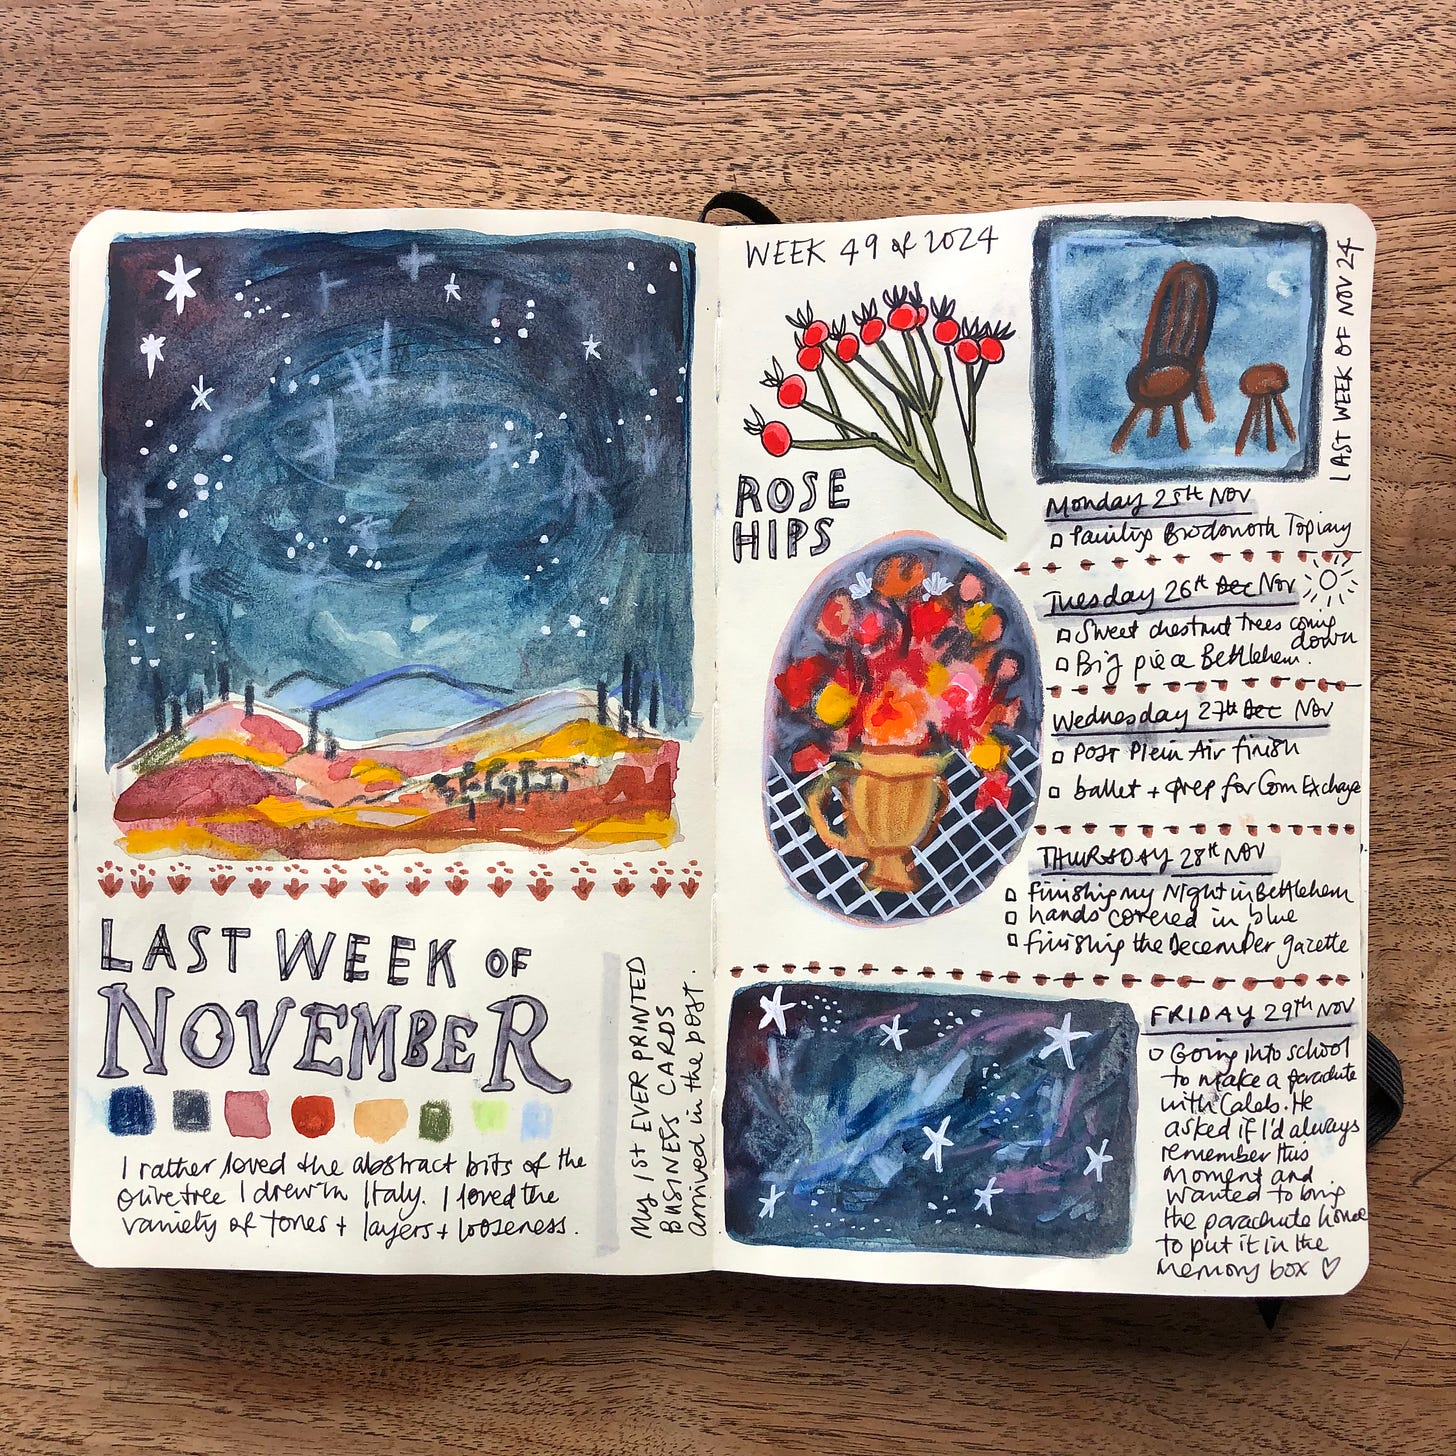 LAST WEEK OF
NOVEMBER
I rather loved the abstract bits of the
Olive tree I drew in Italy. I loved the
variety of tones + layers + looseness.
MY 1ST EVER PRINTED
BUSINESS CARDS
arrived in the post.
WEEK 49 of 2024
ROSE
HIPS
LAST WEEK OF NOV 24
Monday 25th Nov
Painting Brodsworth Topiary
Tuesday 26th Dec Nov
Sweet chestnut trees coming
down
Big piece Bethlehem.
Wednesday 27th Dec Nov
Post Plein Air finish
ballet + prep for Corn Exchange
THURSDAY 28th NOV
finishing my Night in Bethlehem
hands covered in blue
finishing the December gazette
FRIDAY 29th NOV
Going into school
to make a parachute
with Caleb. He
asked if I'd always
remember this
moment and
wanted to bring
the parachute home
to put it in the
memory box ♡